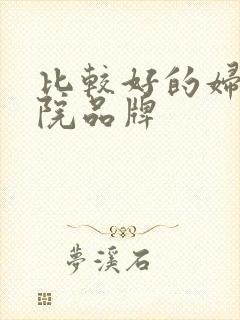 比較好的婦
院品牌
夢溪石